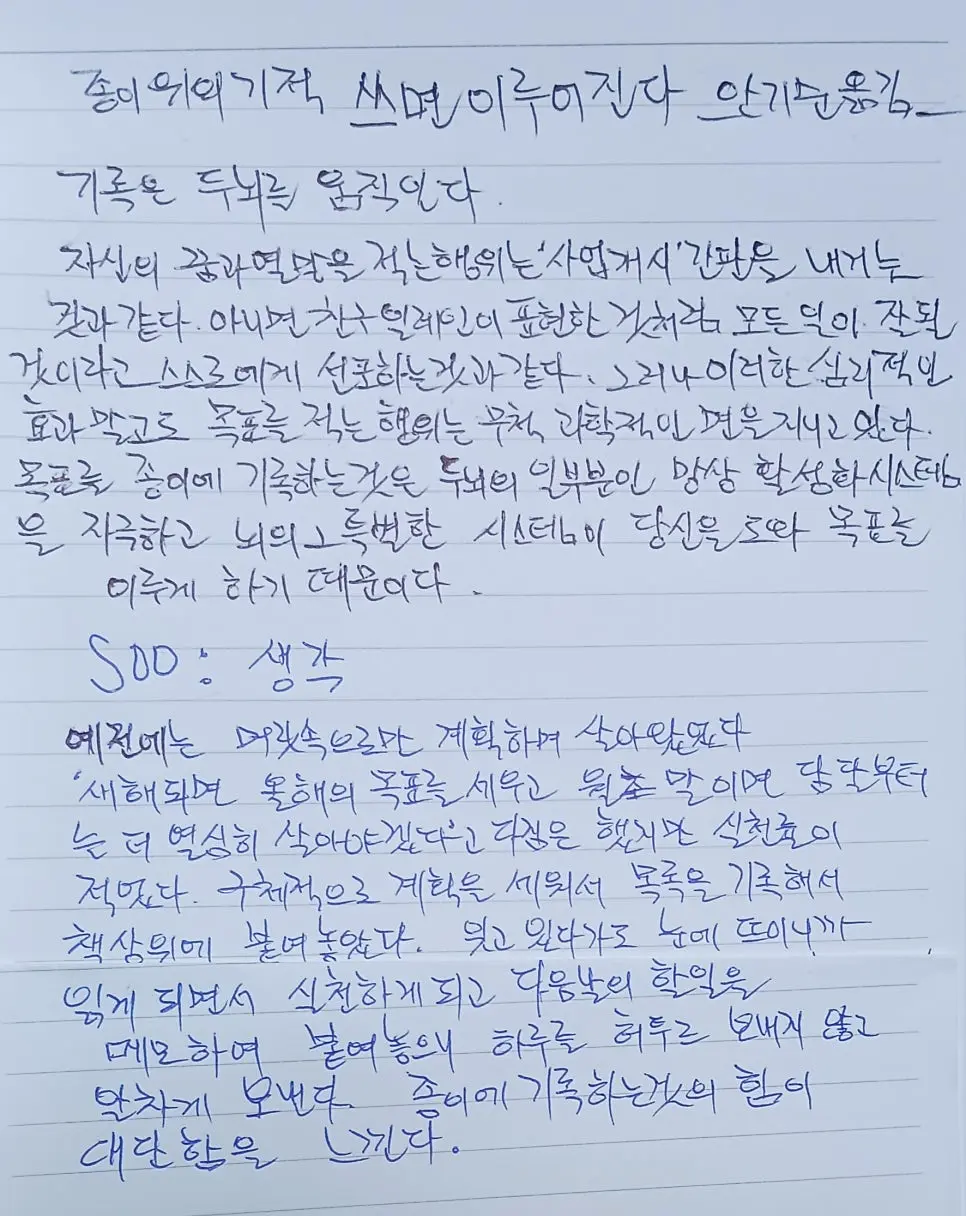 종이위의기적 쓰면이루어진다 안기순옮김
기록은 두뇌를 움직인다.
자신의 꿈과열망을 적는행위는 '사업개시' 간판을 내거는
것과 같다. 아니면 친구 일레인이 표현한 것처럼 모든 일이 잘될
것이라고 스스로에게 선포하는것과 같다. 그러나 이러한 심리적인
효과 말고도 목표를 적는 행위는 무척 과학적인 면을 지니고 있다.
목표를 종이에 기록하는것은 두뇌의 일부분인 망상 활성화시스템
을 자극하고 뇌의 그 특별한 시스템이 당신을 도와 목표를
이루게 하기 때문이다.
SOO : 생각
예전에는 머릿속으로만 계획하며 살아왔었다
'새해되면 올해의 목표를 세우고 월초 말이면 담달부터
는 더 열심히 살아야겠다'고 다짐은 했지만 실천률이
적었다. 구체적으로 계획을 세워서 목록을 기록해서
책상위에 붙여놓았다. 잊고 있다가도 눈에 뜨이니까
읽게 되면서 실천하게되고 다음날의 할일을
메모하여 붙여놓으니 하루를 허투로 보내지 않고
알차게 보낸다. 종이에 기록하는것의 힘이
대단함을 느낀다.